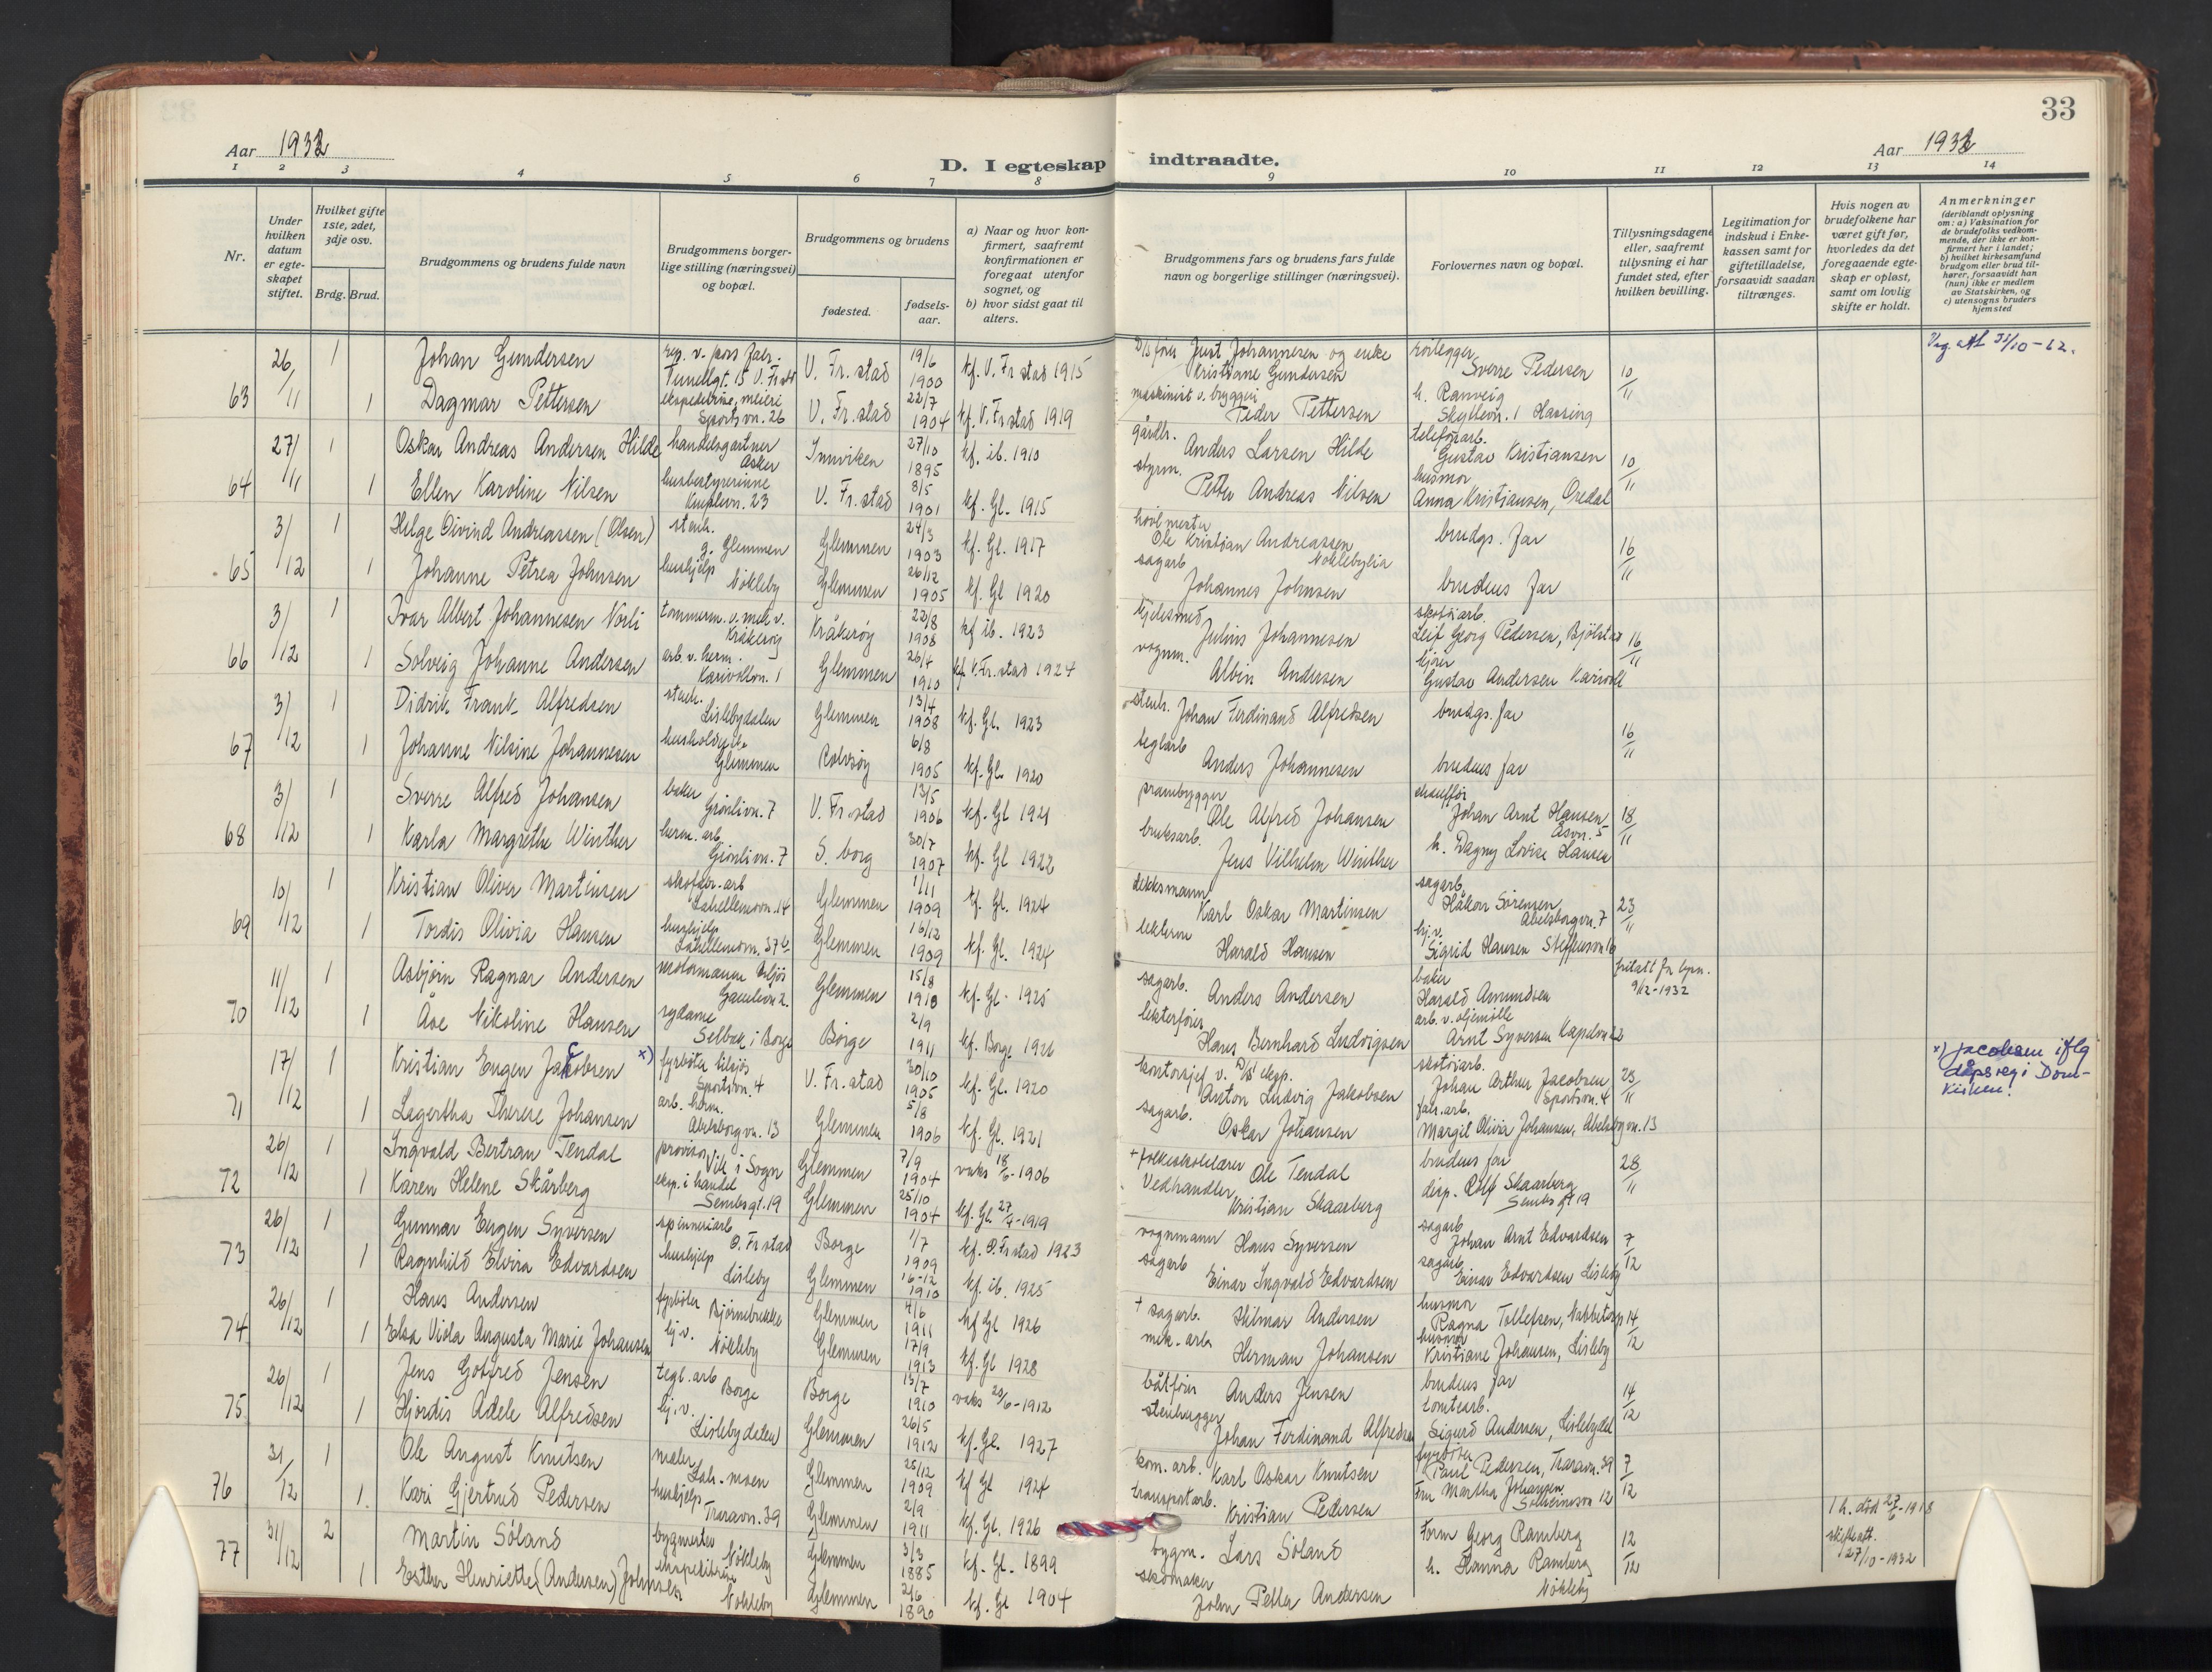 33
Aar 1932
D. I egteskap indtraadte.
Aar 1932
1 2 3 4 5 6 7 8 9 10 11 12 13 14
Nr.
Under hvilken datum er egteskapet stiftet.
Hvilket gifte 1ste, 2det, 3dje osv.
Brdg. Brud.
Brudgommens og brudens fulde navn
Brudgommens borgerlige stilling (næringsvei) og bopæl.
Brudgommens og brudens
fødested.
fødselsaar.
a) Naar og hvor konfirmert, saafremt konfirmationen er foregaat utenfor sognet, og
b) hvor sidst gaat til alters.
Brudgommens fars og brudens fars fulde navn og borgerlige stillinger (næringsvei).
Forlovernes navn og bopæl.
Tillysningsdagene eller, saafremt tillysning ei har fundet sted, efter hvilken bevilling.
Legitimation for indskud i Enkekassen samt for giftetilladelse, forsaavidt saadan tiltrænges.
Hvis nogen av brudefolkene har været gift før, hvorledes da det foregaaende egteskap er opløst, samt om lovlig skifte er holdt.
Anmerkninger
(deriblandt oplysning om: a) Vaksination for de brudefolks vedkommende, der ikke er konfirmert her i landet; b) hvilket kirkesamfund brudgom eller brud tilhører, forsaavidt han (hun) ikke er medlem av Statskirken, og c) utensogns bruders hjemsted
63 26/11 1 Johan Gundersen V. Fr.stad 19/6 1900 kf. V. Fr.stad 1915 Just Johannesen og enke Kristiane Gundersen rørlegger Sverre Pedersen 10/11
1 Dagmar Pettersen ekspeditrise, meieri Sportsvn. 26 V. Fr.stad 22/7 1904 kf. V. Fr.stad 1919 maskinist v. bryggeri Peder Pettersen h. Ranveig
64 27/11 1 Oskar Andreas Andersen Hilde handelsgartner Asker Innviken 27/10 1895 kf. ib. 1910 gårdbr. Anders Larsen Hilde telefonarb. Gustav Kristiansen 10/11
1 Ellen Karoline Nilsen husbestyrerinne V. Fr.stad 8/5 1901 kf. Gl. 1915 styrm. Petter Andreas Nilsen husmor Anna Kristiansen, Oredal
65 3/12 1 Helge Øivind Andreassen (Olsen) stenh. g. Glemmen Glemmen 24/3 1903 kf. Gl. 1917 høvlmester Ole Kristian Andreassen Nøklebylia brudgs. far 16/11
1 Johanne Petrea Johnsen hushjelp Nökleby Glemmen 26/12 1905 kf. Gl 1920 sagarb Johannes Johnsen brudens far
66 3/12 1 Ivar Albert Johannesen Norli tømmerm. v. mek. v. Kråkerøy Kråkerøy 22/8 1908 kf ib. 1923 kjelesmed Julius Johannesen skotøiarb. Leif Georg Pedersen, Bjølstad 16/11
1 Solveig Johanne Andersen arb. v. herm. Karivollvn. 1 Glemmen 26/4 1910 kf. V. Fr.stad 1924 vognm. Albin Andersen kjører Gustav Andersen Karivoll
67 3/12 1 Didrik Frank Alfredsen stenh. Lislebydalen Glemmen 13/4 1908 kf. Gl. 1923 stenh. Johan Ferdinand Alfredsen brudgs. far 16/11
1 Johanne Nilsine Johannesen Glemmen Rolvsøy 6/8 1905 kf. Gl. 1920 teglarb Anders Johannesen brudens far
68 3/12 1 Sverre Alfred Johansen baker Grønlivn. 7 V. Fr.stad 13/5 1906 kf. Gl 1921 prambygger Ole Alfred Johansen chauffør Johan Arnt Hansen Åsvn. 5 18/11
1 Karla Margrethe Winther herm. arb Grønlivn. 7 S. borg 30/7 1907 kf. Gl 1922 bruksarb. Jens Vilhelm Winther h. Dagny Lovise Hansen
69 10/12 1 Kristian Oliver Martinsen Lahellemovn. 14 Glemmen 1/11 1909 kf. Gl. 1924 dekksmann Karl Oskar Martinsen sagarb. Håkon Sørensen, Abelsborgvn. 7 23/11
1 Tordis Olivia Hansen hushjelp Glemmen 16/12 1909 kf. Gl. 1924 Harald Hansen hj.v. Sigrid Hansen
70 11/12 1 Asbjørn Ragnar Andersen Glemmen 15/8 1910 kf. Gl. 1925 sagarb. Anders Andersen baker Harald Amundsen 9/12-1932
1 Åse Nikoline Hansen sydame Selbak i Borge Borge 2/9 1911 kf. Borge 1926 lekterfører Hans Bernhard Ludvigsen arb. v. oljemølle Arnt Syversen
71 17/12 1 Kristian Eugen Jacobsen x) fyrbøter tilsjøs Sportsvn. 4 V. Fr.stad 30/10 1905 kf. Gl. 1920 kontorsjef v. D/S eksp. Anton Ludvig Jakobsen skotøiarb. Johan Arthur Jacobsen Sportsvn. 4 25/11 x) Jacobsen iflg dåpsreg i Domkirken.
1 Lagertha Therese Johansen arb. herm. Abelsborgvn. 13 Glemmen 5/8 1906 kf. Gl. 1921 sagarb. Oskar Johansen fabr. arb. Margit Olivia Johansen, Abelsbgvn. 13
72 26/12 1 Ingvald Bertran Tendal provisor Vik i Sogn Glemmen 7/9 1904 vaks 18/6-1906 + folkeskolelærer Ole Tendal brudens far 28/11
1 Karen Helene Skårberg eksp. i handel Sembsgt. 19 Glemmen 25/10 1904 kf. Gl. 27/4-1919 Vedhandler Kristian Skaarberg disp. Rolf Skaarberg Sembsgt 19
73 26/12 1 Gunnar Eugen Syversen spinneriarb Ø. Fr.stad Borge 1/7 1909 kf. Ø. Fr.stad 1923 vognmann Hans Syversen sagarb Johan Arnt Edvardsen 7/12
1 Ragnhild Elvira Edvardsen hushjelp Lisleby Glemmen 16-12 1910 kf. ib. 1925 sagarb Einar Ingvald Edvardsen sagarb Einar Edvardsen Lisleby
74 26/12 1 Hans Andersen fyrbøter Bjørnebekke Glemmen 4/6 1911 kf Gl 1926 + sagarb. Hilmar Andersen husmor Ragna Tollefsen, Nabbetorp 14/12
1 Elsa Viola Augusta Marie Johansen hj.v. Nökleby Glemmen 17/9 1913 kf. Gl 1928 mek. arb Herman Johansen husmor Kristiane Johansen, Lisleby
75 26/12 1 Jens Gotfred Jensen tegl. arb Borge Borge 13/7 1910 vaks 20/6-1912 båtfører Anders Jensen brudens far 14/12
1 Hjørdis Adele Alfredsen hj.v. Lislebydalen Glemmen 26/5 1912 kf. Gl. 1927 stenhugger Johan Ferdinand Alfredsen tomtearb. Sigurd Andersen, Lislebydal
76 31/12 1 Ole August Knutsen maler Lah. moen Glemmen 25/12 1909 kf Gl 1924 kom. arb. Karl Oskar Knutsen fyrbøter Paul Pedersen, Traravn. 39 7/12
1 Kari Gjertrud Pedersen hushjelp Traravn. 39 Glemmen 2/9 1911 kf. Gl. 1926 transportarb. Kristian Pedersen Fru Martha Johansen
77 31/12 2 Martin Søland bygmester Nökleby Glemmen 3/3 1885 kf. Gl. 1899 bygm. Lars Søland Form Georg Ramberg 12/12 1 h. død 27/6-1918 skifteatt. 27/10-1932
1 Esther Henriette (Andersen) Johnsen ekspeditrise Nökleby Glemmen 2/6 1890 kf. Gl 1904 skomaker John Petter Andersen h. Hanna Ramberg Nökleby